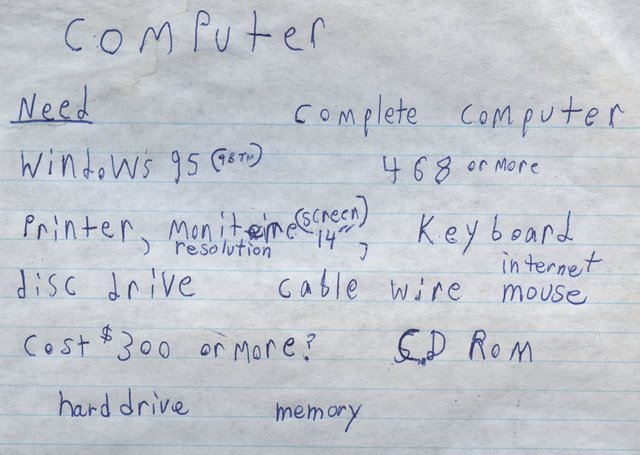 Computer
Need complete computer
Windows 95 468 or more
Printer, (screen) Keyboard
resolution 14" , internet
disc drive cable wire mouse
Cost $300 or more? CD ROM
hard drive memory